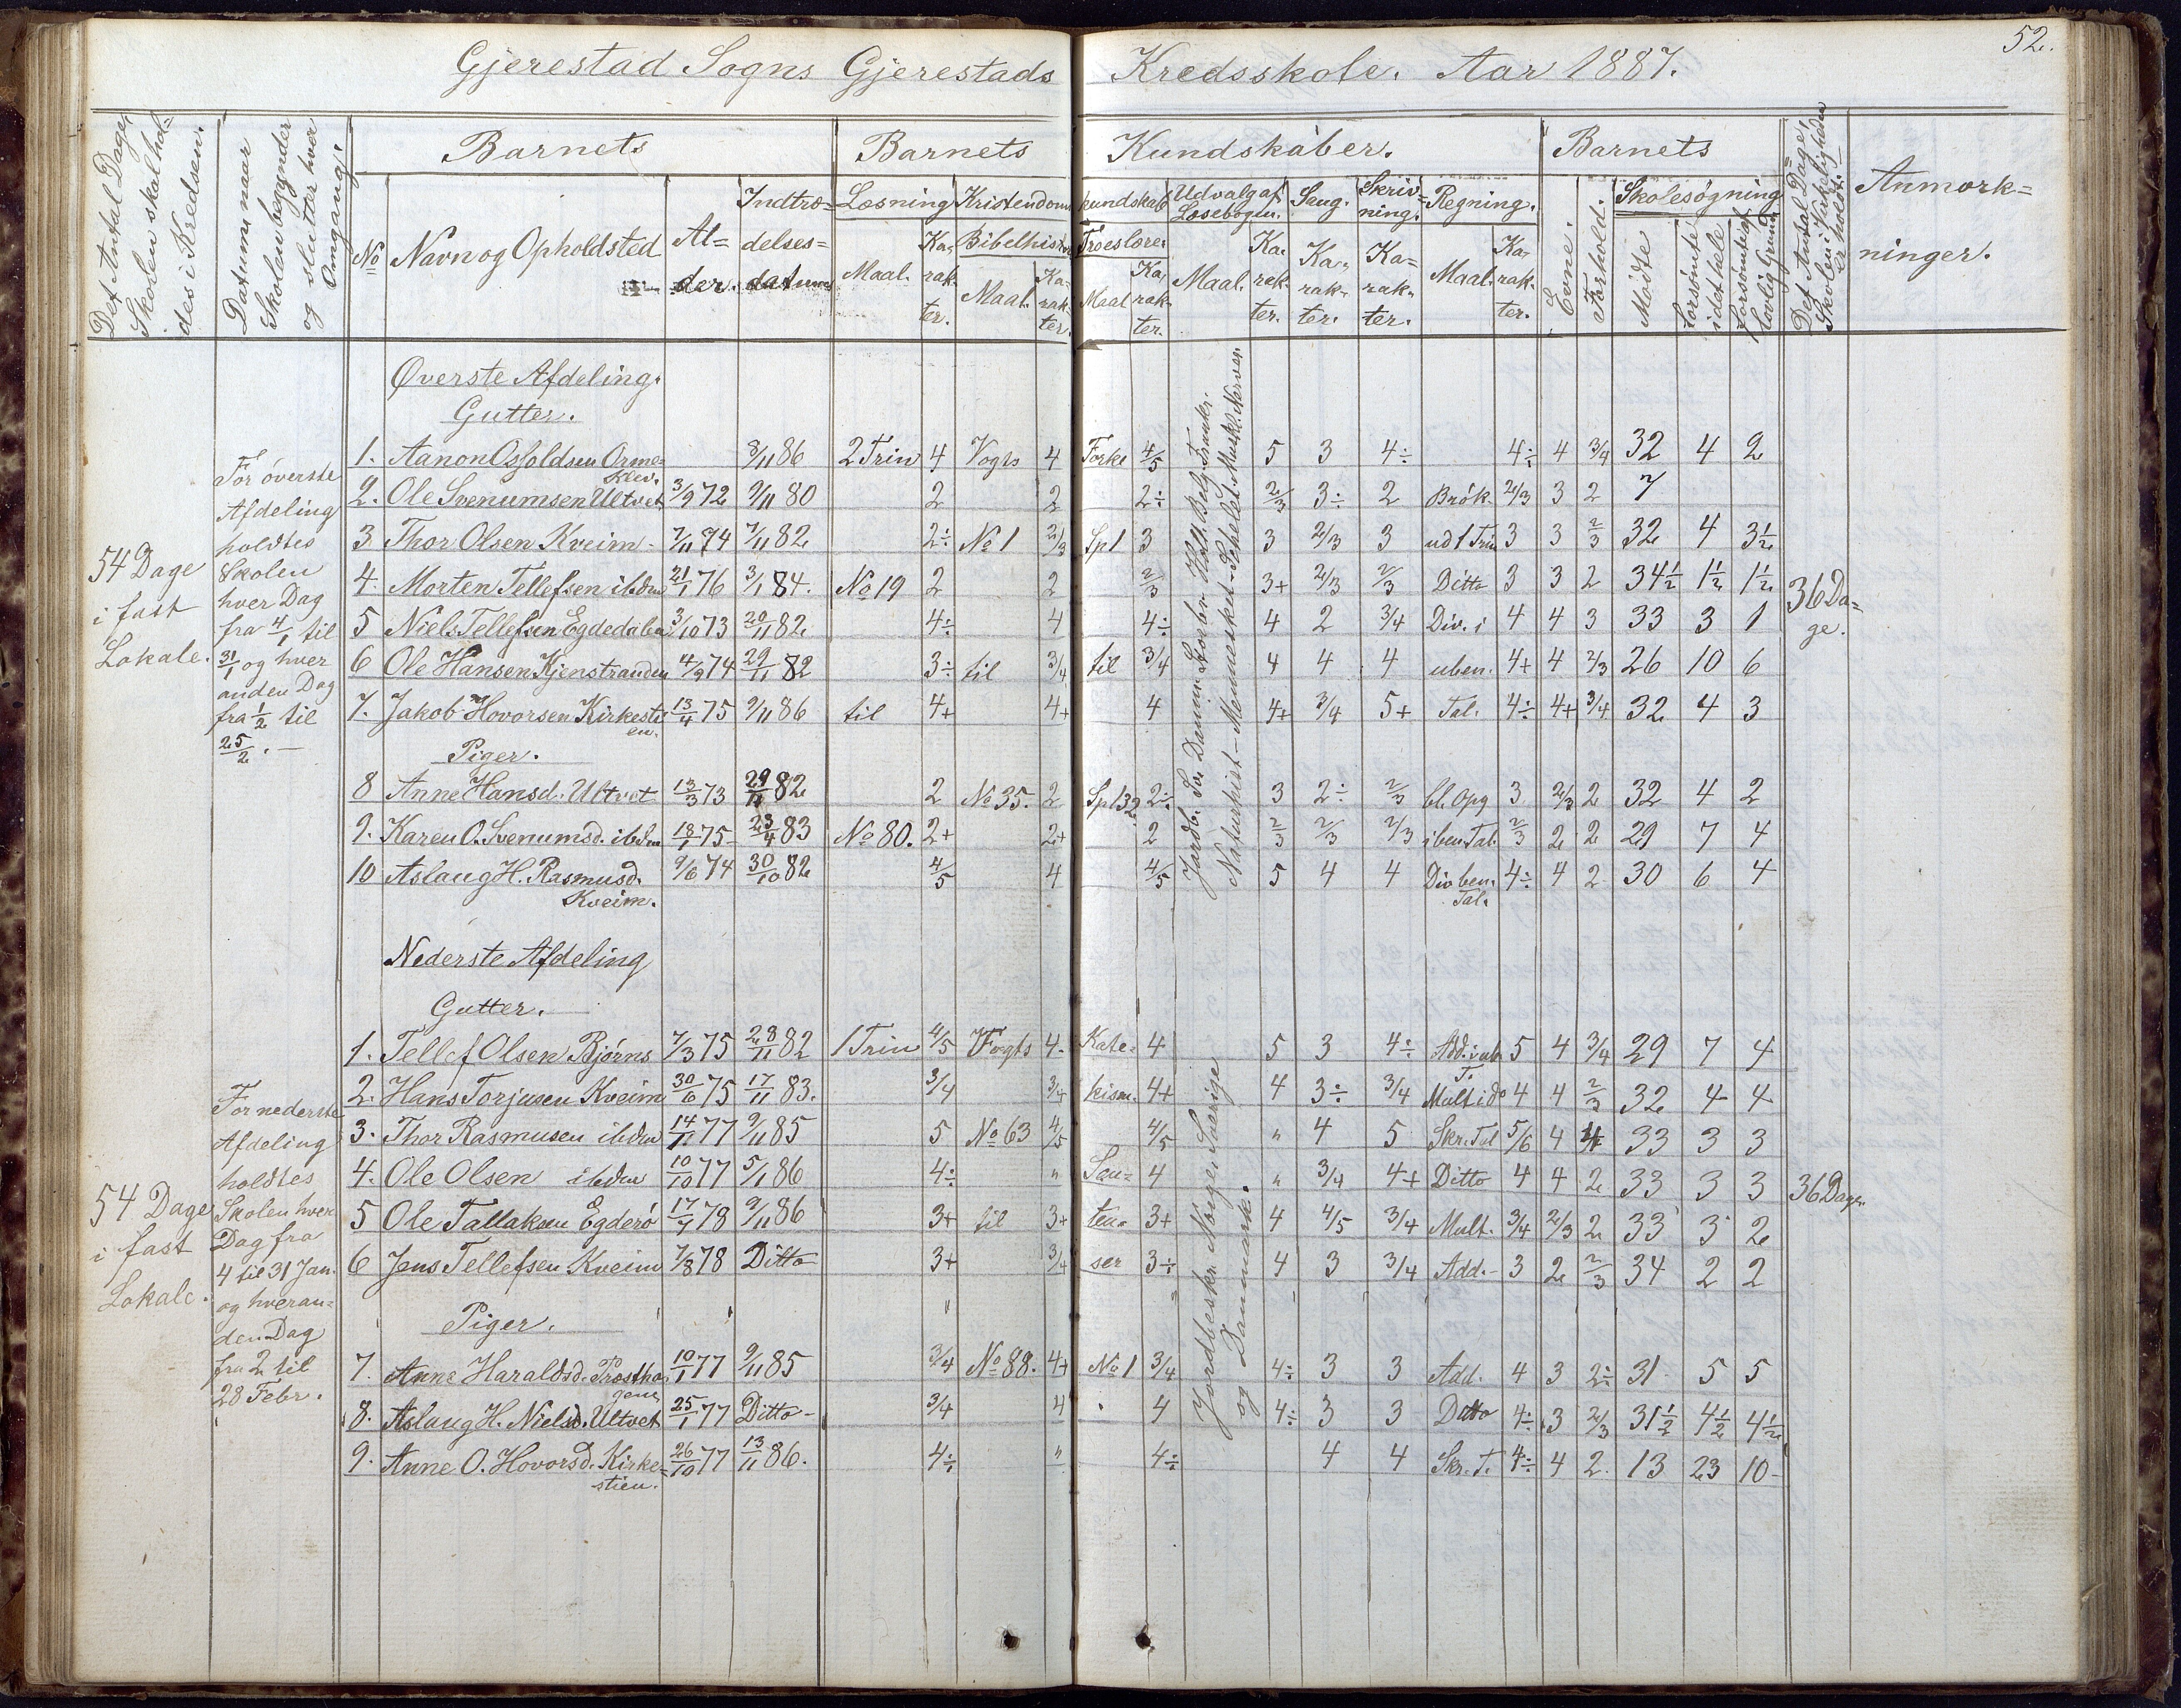 52.
Gjerestad Sogns Gjerestads Kredsskole. Aar 1887.
Det Antal Dage, Skolen skal holdes i Kredsen.
Datum naar Skolen begynder og slutter hver Omgang.
Barnets
Barnets Kundskaber.
Barnets
Det Antal Dage, Skolen i Virkeligheden er holdt.
Anmærkninger.
No
Navn og Opholdsted
Alder.
Indtrædelsesdatum
Læsning
Kristendomskundskab
Udvalg af Læsebogen.
Sang.
Skrivning.
Regning.
Evne.
Forhold.
Skolesøgning
Bibelhistorie
Troeslære.
Maal. Karakter. Maal. Karakter. Maal Karakter. Maal. Karakter. Karakter. Karakter. Maal. Karakter.
Mødte
Forsømte i det hele
Forsømte af lovlig Grund
Øverste Afdeling.
Gutter.
54 Dage
i fast
Lokale.
For øverste
Afdeling
holdtes
Skolen
hver Dag
fra 4/1 til
31/1 og hver
anden Dag
fra 1/2 til
25/2.
1. Aanon Osfoldsen Ormeklev. 8/11 86 2 Trin 4 Vogts 4 Forkl 4/5 5 3 4÷ 4÷ 4 3/4 32 4 2
2. Ole Svenumsen Ultvet 3/9 72 9/11 80 2 2 2÷ 2/3 3÷ 2 Brök. 2/3 3 2 7
3 Thor Olsen Kveim 7/11 74 7/11 82 2÷ No 1 2/3 Sp 1 3 3 2/3 3 ud 1 Trin 3 3 2/3 32 4 3½
4. Morten Tellefsen ibdm 21/1 76 3/1 84. No 19 2 2 2/3 3+ 2/3 2/3 Ditto 3 3 2 34½ 1½ 1½
36 Dage.
5 Niels Tellefsen Egdedalen 3/10 73 20/11 82 4÷ 4 4÷ 4 2 3/4 Div. i 4 4 3 33 3 1
6 Ole Hansen Kjenstranden 4/9 74 29/11 82 3÷ til 3/4 til 3/4 4 4 4 uben. 4+ 4 2/3 26 10 6
7. Jakob Hovorsen Kirkestien. 13/4 75 9/11 86 til 4+ 4+ 4 4+ 3/4 5+ Tal. 4÷ 4+ 3/4 32 4 3
Naturhist - Mennesket - Skelet - Muskl. Nerver.
Piger.
8 Anne Hansd. Ultvet 13/3 73 29/11 82 2 No 35. 2 Sp 132 2÷ 3 2÷ 2/3 bl. Opg 3 2/3 2 32 4 2
9. Karen O. Svenumsd. ibdm 18/1 75 23/4 83 No 80. 2+ 2+ 2 2/3 2/3 2/3 i ben Tal. 2/3 2 2 29 7 4
10 Aslaug H. Rasmusd. Kveim. 9/6 74 30/10 82 4/5 4 4/5 5 4 4 Div ben. Tal. 4÷ 4 2 30 6 4
Nederste Afdeling
Gutter.
54 Dage
i fast
Lokale.
For nederste
Afdeling
holdtes
Skolen hver
Dag fra
4 til 31 Jan.
og hver anden Dag
fra 2 til
28 Febr.
1. Tellef Olsen Bjørns 7/3 75 28/11 82 1 Trin 4/5 Vogts 4. Kate- 4 5 3 4÷ Add. i ub. T. 5 4 3/4 29 7 4
2. Hans Torjusen Kveim 30/6 75 17/11 83. 3/4 3/4 kism. 4+ 4 3÷ 3/4 Mult i do 4 4 2/3 32 4 4
3. Thor Rasmusen ibdm 14/11 77 9/11 85 5 No 63 4/5 4/5 " 4 5 Skr. Tal 5/6 4 4 33 3 3
4. Ole Olsen ibdm 10/10 77 5/1 86 4÷ " Sen- 4 " 3/4 4+ Ditto 4 4 2 33 3 3
36 Dage.
5 Ole Tallaksen Egderö 17/7 78 9/11 86 3+ til 3+ ten- 3+ 4 4/5 3/4 Mult. 3/4 2/3 2 33 3 2
6 Jens Tellefsen Kveim 7/8 78 Ditto 3+ 3/4 ser 3÷ 4 3 3/4 Add. 3 2 2/3 34 2 2
Jordbeskr. Norge, Sverige og Danmark.
Piger.
7. Anne Haraldsd. Prosthagene 10/1 77 9/11 85 3/4 No 88. 4+ No 1 3/4 4÷ 3 3 Add. 4 3 2÷ 31 5 5
8. Aslaug H. Nielsd. Ultvet 25/1 77 Ditto 3/4 4 4 4÷ 3 3 Ditto 4÷ 3 2/3 31½ 4½ 4½
9. Anne O. Hovorsd. Kirkestien. 26/10 77 13/11 86. 4÷ " 4÷ 4 4 Skr. T. 4÷ 4 2. 13 23 10